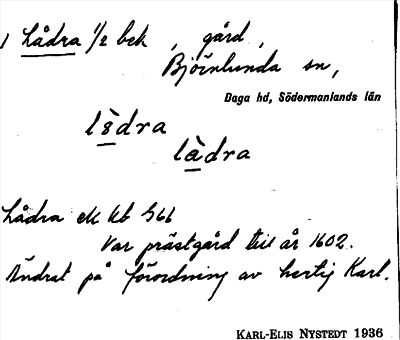 1 Lådra 1/2 bek , gård ,
Björnlunda sn,
Daga hd, Södermanlands län
l s̀dra
làdra
Lådra ek kb 566
Var prästgård till år 1602.
Ändrat på förordning av hertig Karl.
KARL-ELIS NYSTEDT 1936